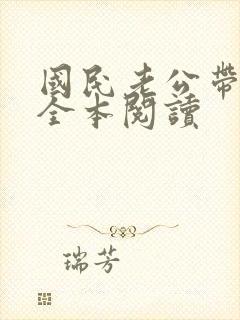 國民老公帶
全本閱讀
瑞芳